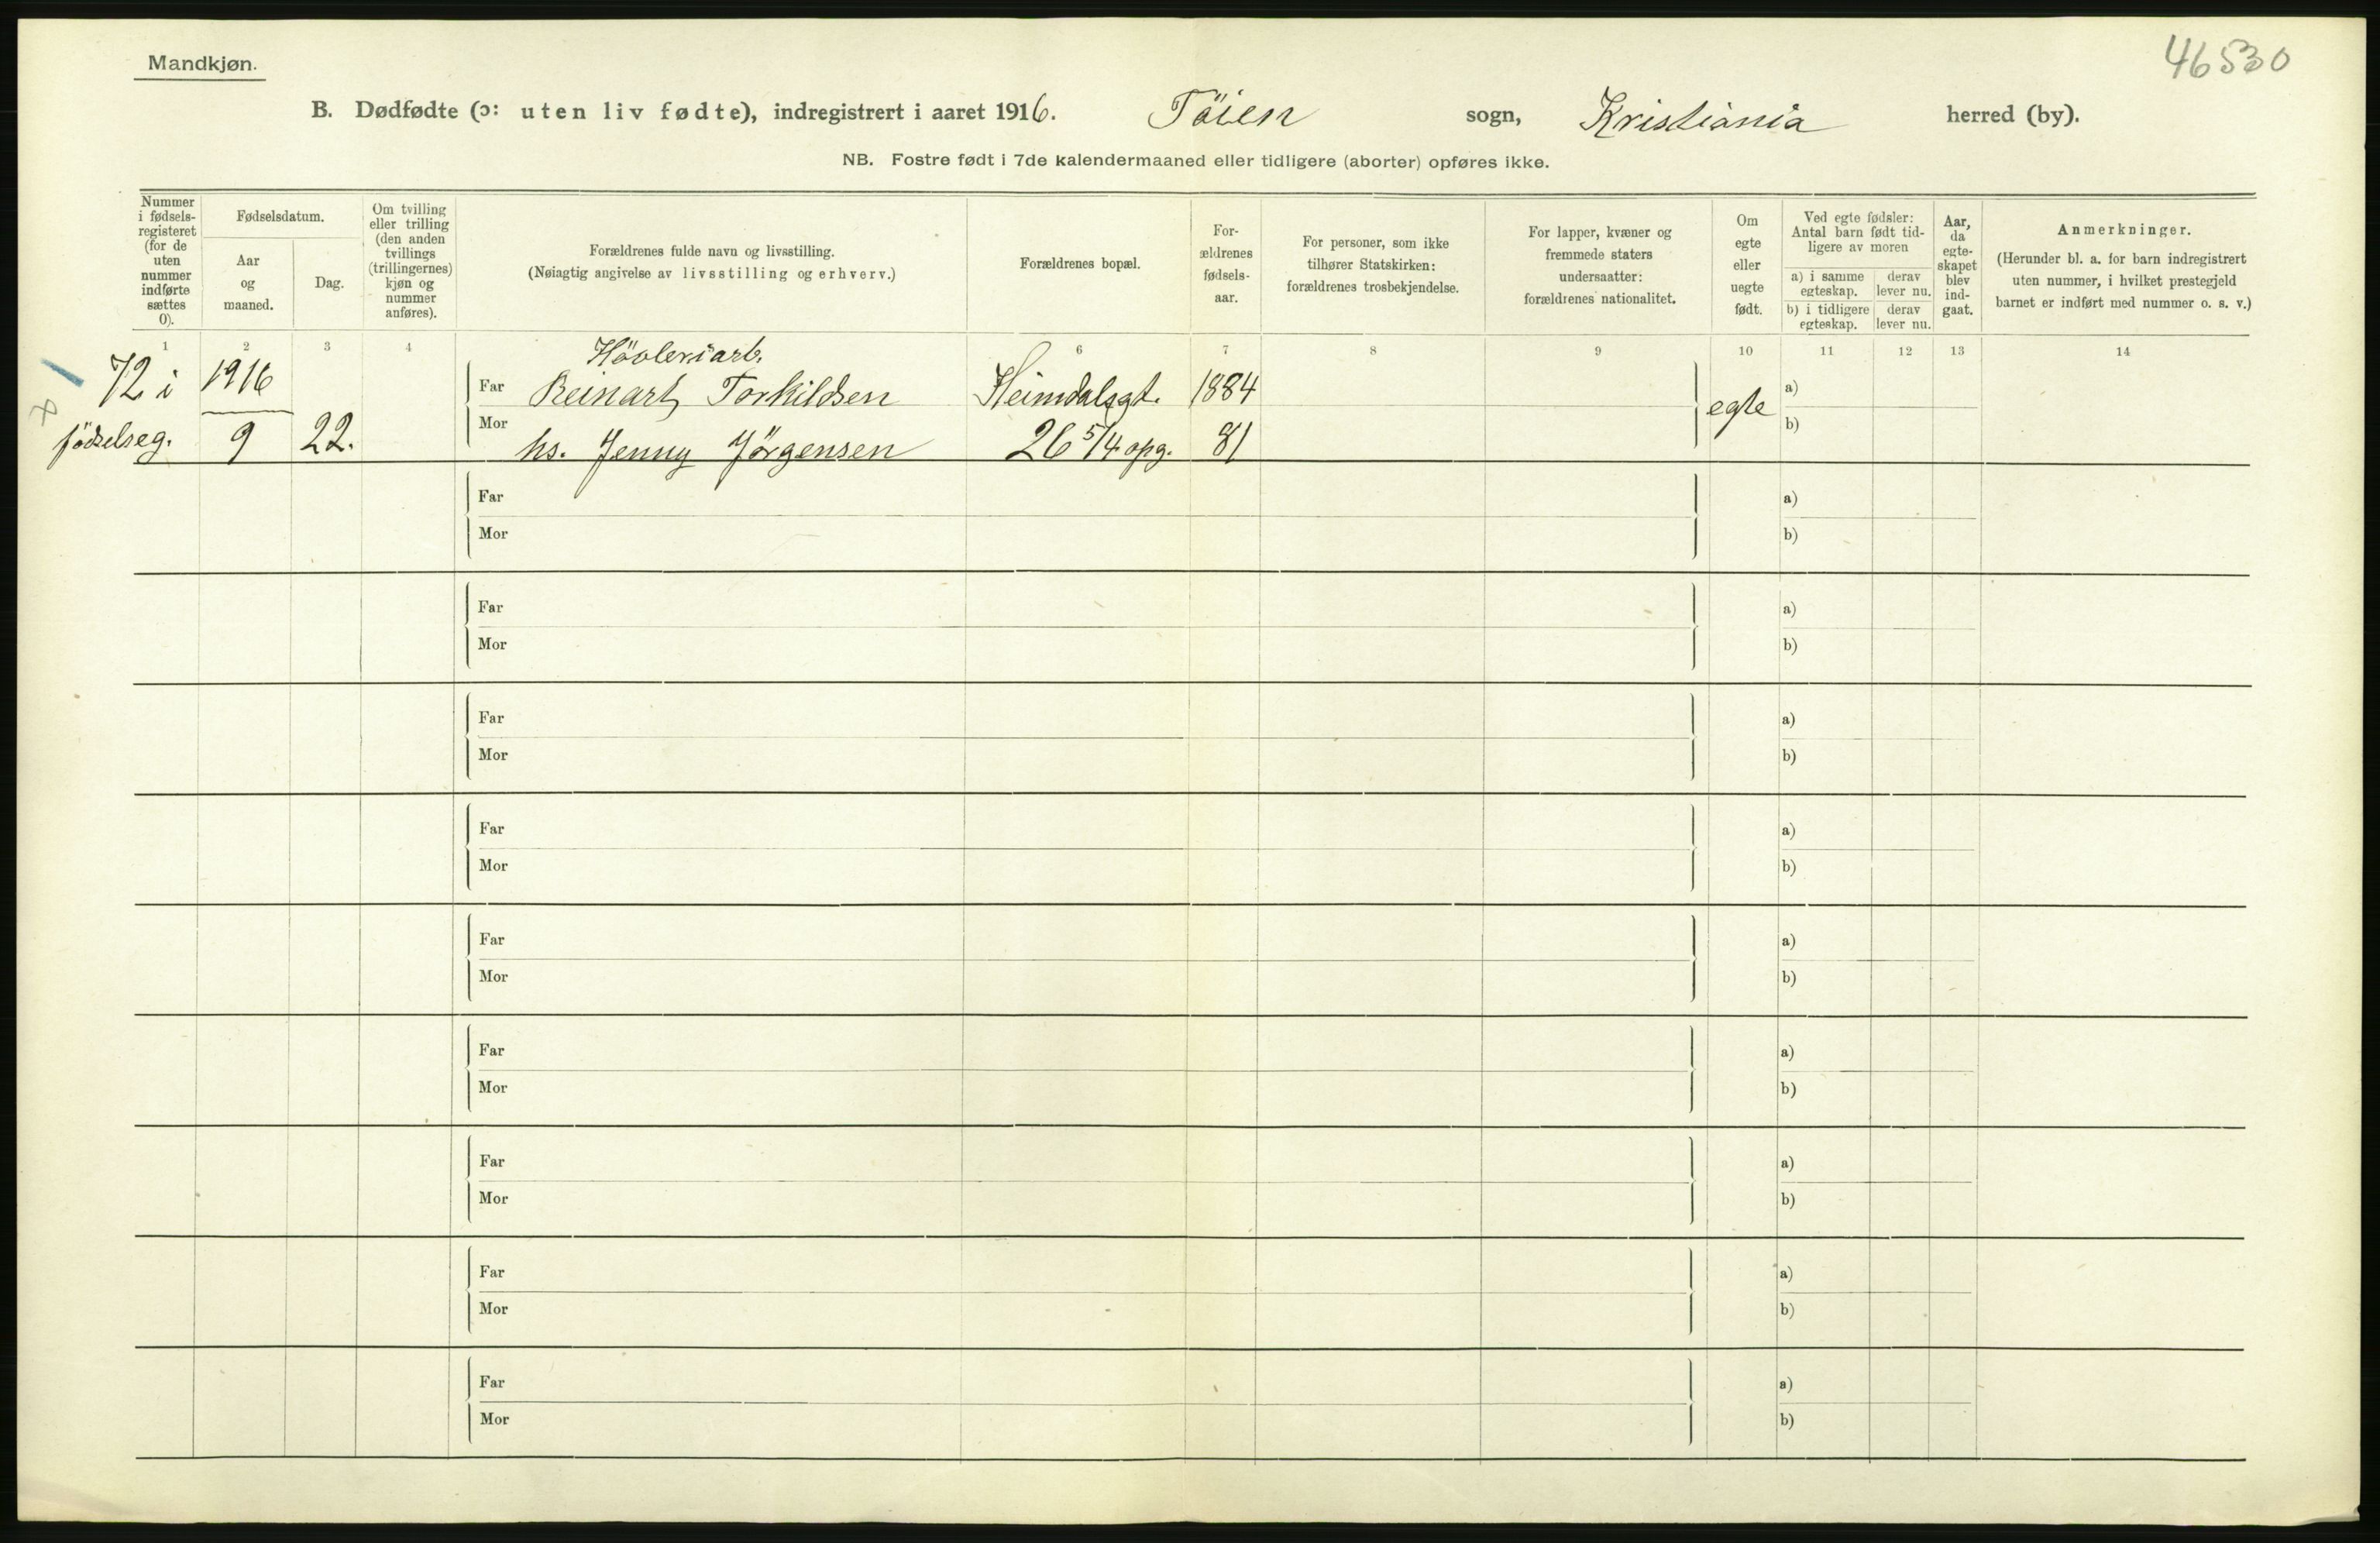 Mandkjøn.
46530
B. Dødfødte (ɔ: uten liv fødte), indregistrert i aaret 1916. Töien sogn, Kristiania herred (by).
NB. Fostre født i 7de kalendermaaned eller tidligere (aborter) opføres ikke.
Nummer
i fødsels-
registeret
(for de
uten
nummer
indførte
sættes
0).
Fødselsdatum.
Aar
og
maaned.
Dag.
Om tvilling
eller trilling
(den anden
tvillings
(trillingernes)
kjøn og
nummer
anføres).
Forældrenes fulde navn og livsstilling.
(Nøiagtig angivelse av livsstilling og erhverv.)
Forældrenes bopæl.
For-
ældrenes
fødsels-
aar.
For personer, som ikke
tilhører Statskirken:
forældrenes trosbekjendelse.
For lapper, kvæner og
fremmede staters
undersaatter:
forældrenes nationalitet.
Om
egte
eller
uegte
født.
Ved egte fødsler:
Antal barn født tid-
ligere av moren
a) i samme
egteskap.
derav
lever nu.
b) i tidligere
egteskap.
derav
lever nu.
Aar,
da
egte-
skapet
blev
ind-
gaat.
Anmerkninger.
(Herunder bl. a. for barn indregistrert
uten nummer, i hvilket prestegjeld
barnet er indført med nummer o. s. v.)
1 2 3 4 6 7 8 9 10 11 12 13 14
Hövleriarb.
72 i 1916 Far Reinart Torkildsen Heimdalsgt. 1884 egte a)
födselseg. 9 22. Mor hs. Jenny Jörgensen 26 5/4 opg. 81 b)
Far a)
Mor b)
Far a)
Mor b)
Far a)
Mor b)
Far a)
Mor b)
Far a)
Mor b)
Far a)
Mor b)
Far a)
Mor b)
Far a)
Mor b)
Far a)
Mor b)